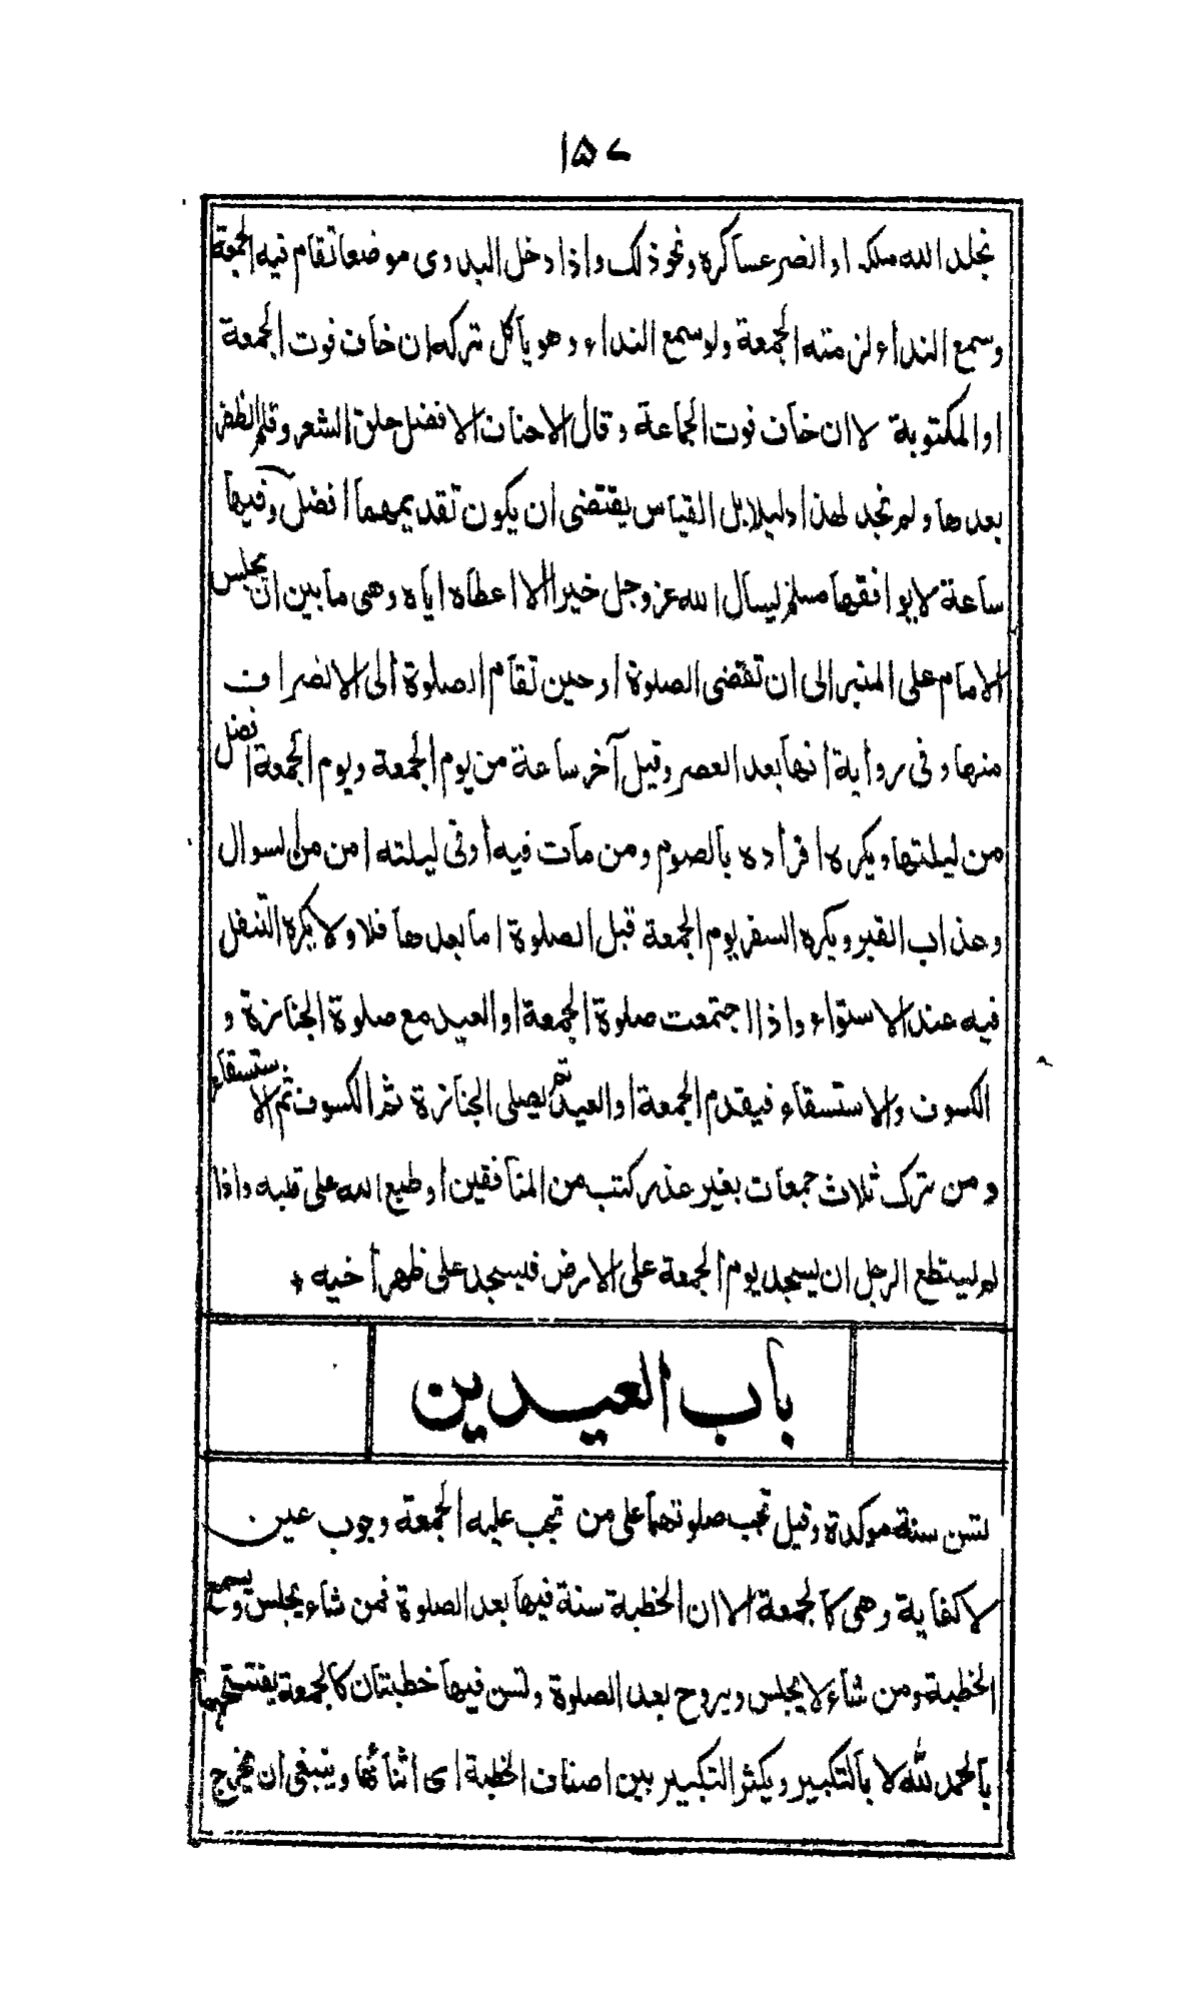 ١٥٧
نجلد الله ملكه او انصر عساكره ونحو ذلك واذا دخل البدوى موضعا تقام فيه الجمعة
وسمع النداء لزمته الجمعة ولو سمع النداء وهو ياكل تركه ان خاف فوت الجمعة
او المكتوبة لا ان خاف فوت الجماعة وقال الاحناف الافضل حلق الشعر وقلم الظفر
بعدها ولم نجد لهذا دليلا بل القياس يقتضى ان يكون تقديمهما افضل وفيها
ساعة لا يوافقها مسلم يسأل الله عزوجل خيرا الا اعطاه اياه وهى ما بين ان يجلس
الامام على المنبر الى ان تقضى الصلوة او حين تقام الصلوة الى الانصراف
منها وفى رواية انها بعد العصر وقيل آخر ساعة من يوم الجمعة ويوم الجمعة افضل
من ليلتها ويكره افراده بالصوم ومن مات فيه او فى ليلته امن من السوال
وعذاب القبر ويكره السفر يوم الجمعة قبل الصلوة اما بعدها فلا ولا يكره التنفل
فيه عند الاستواء واذا اجتمعت صلوة الجمعة او العيد مع صلوة الجنازة و
الكسوف والاستسقاء فيقدم الجمعة او العيد ثم يصلى الجنازة ثم الكسوف ثم الاستسقاء
ومن ترك ثلاث جمعات بغير عذر كتب من المنافقين او طبع الله على قلبه واذا
لم يستطع الرجل ان يسجد يوم الجمعة على الارض فليسجد على ظهر اخيه +
باب العيدين
تسن سنة موكدة وقيل تجب صلوتهما على من تجب عليه الجمعة وجوب عين
لا كفاية وهى كالجمعة الا ان الخطبة سنة فيها بعد الصلوة فمن شاء يجلس ويسمع
الخطبة ومن شاء لا يجلس ويروح بعد الصلوة وتسن فيها خطبتان كالجمعة يفتتحهما
بالحمد لله لا بالتكبير ويكثر التكبير بين اضعاف الخطبة اى اثنائها وينبغى ان يخرج